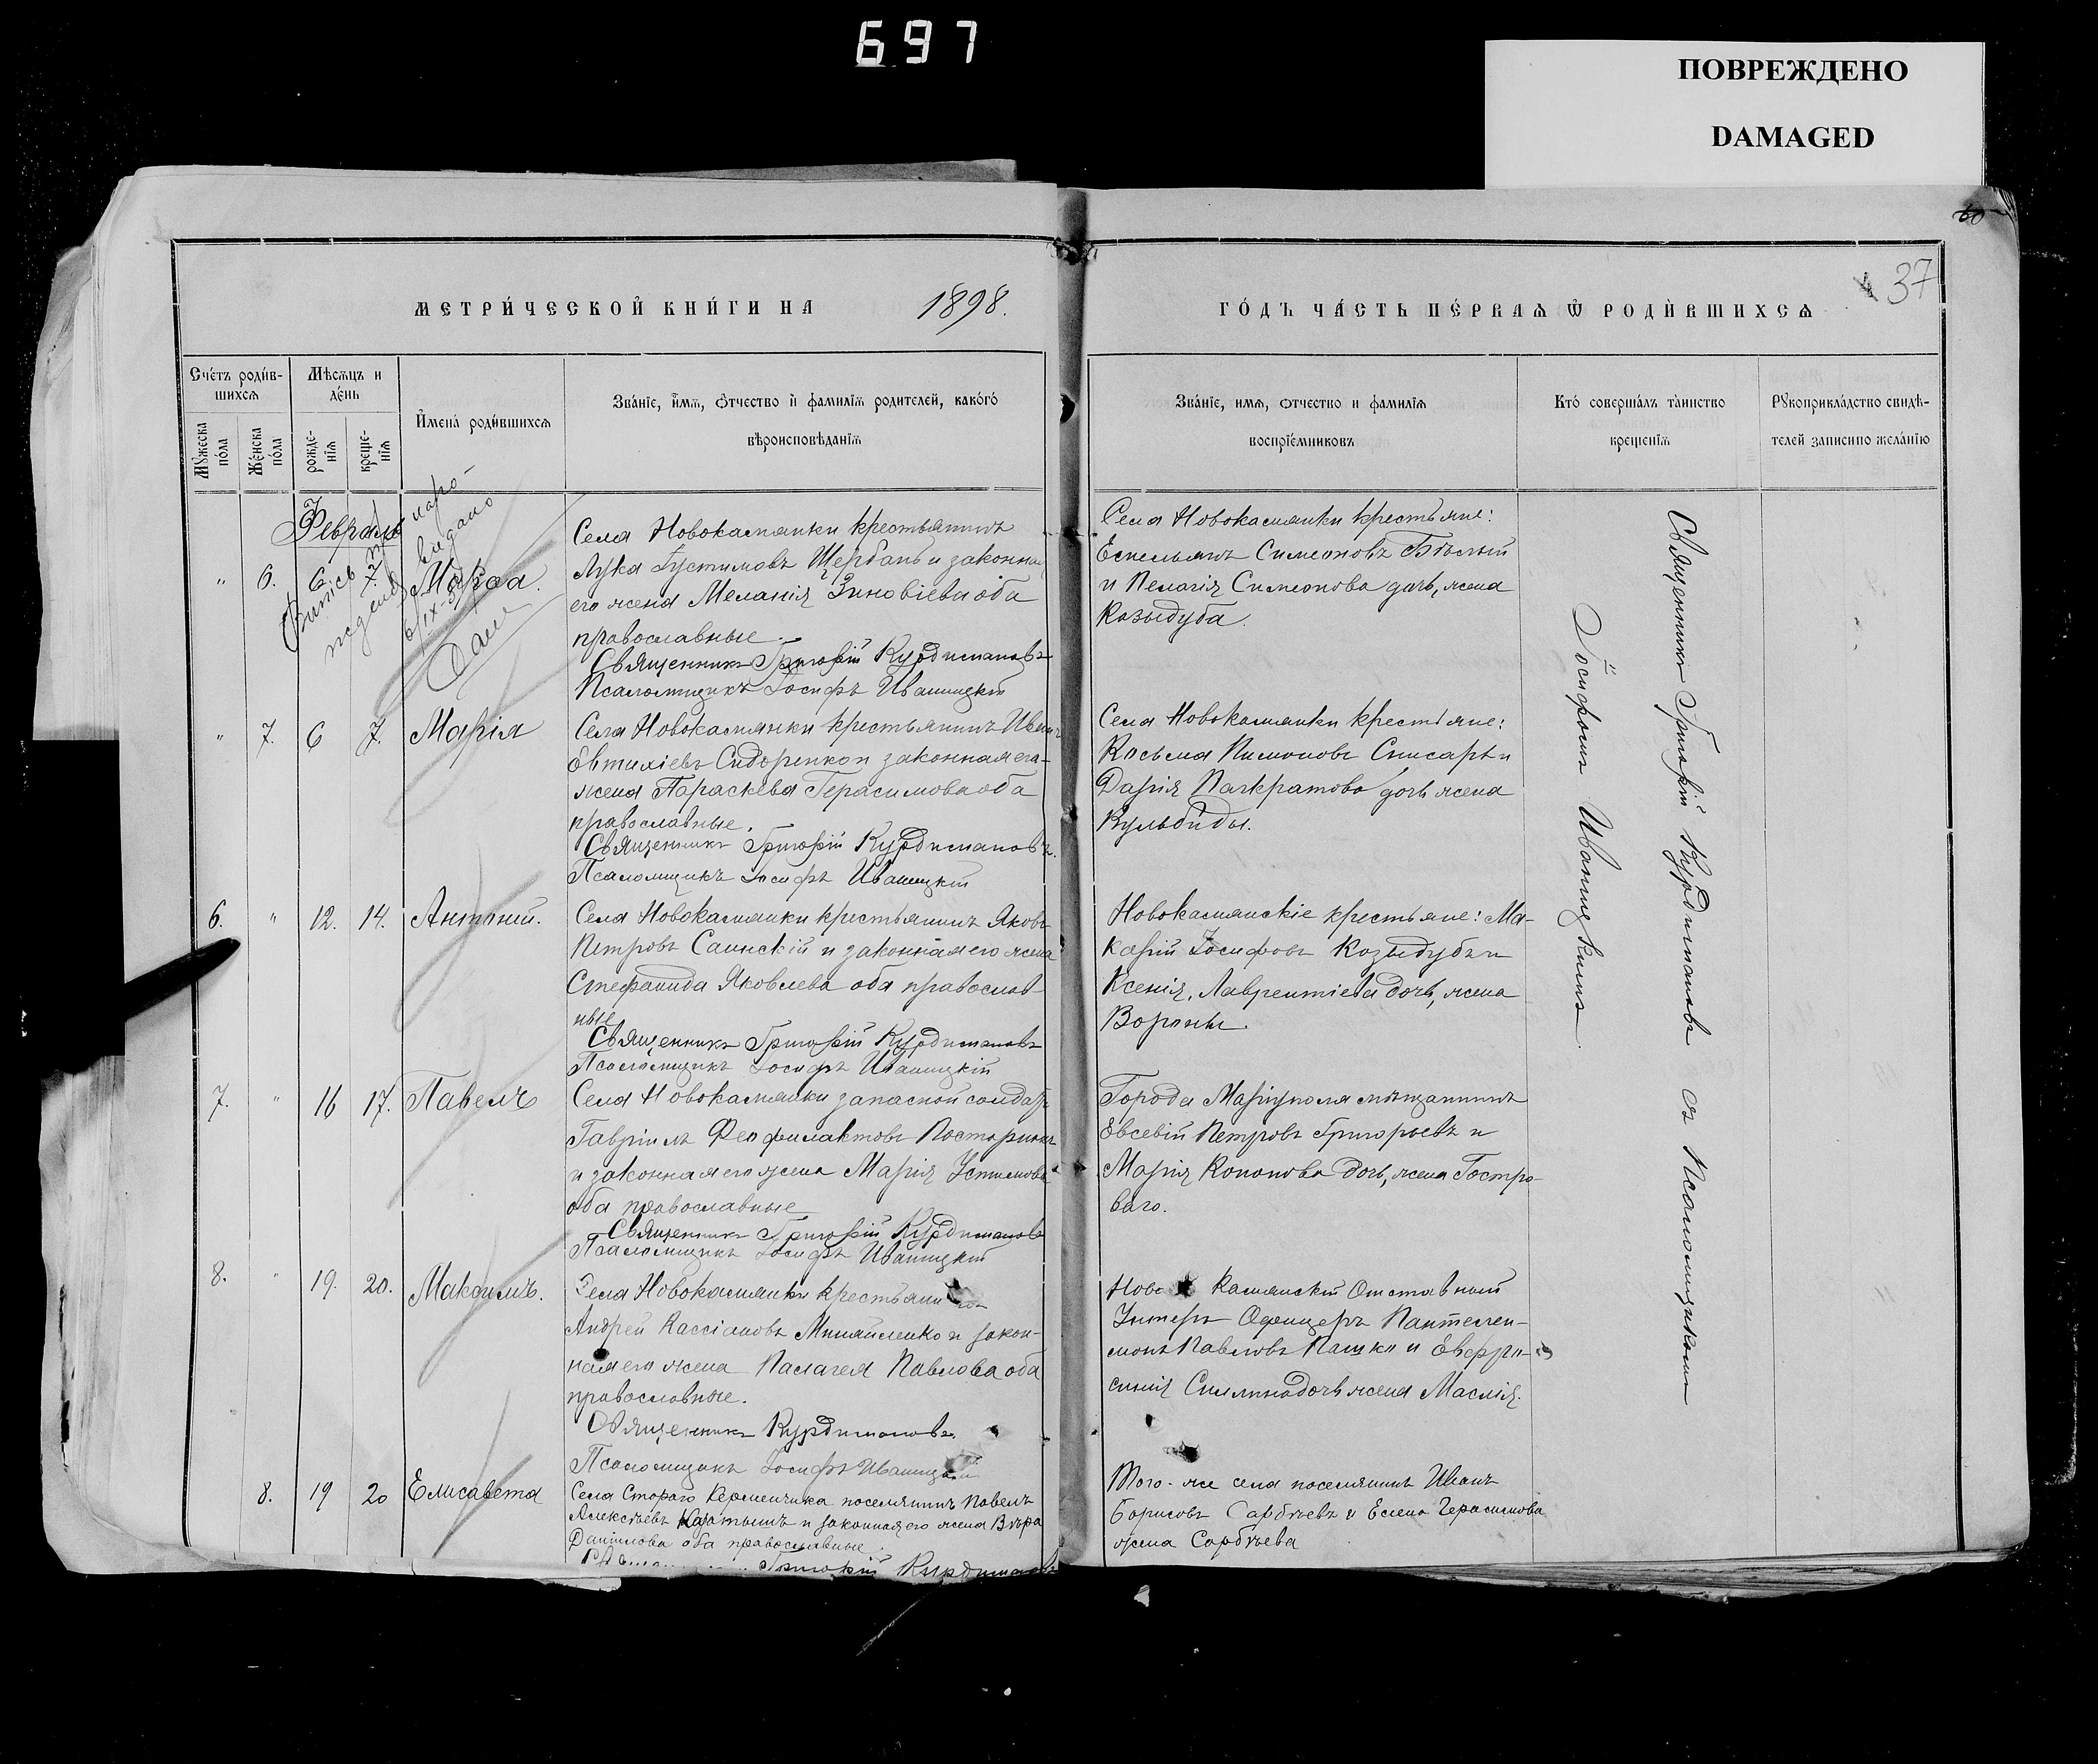 697
ПОВРЕЖДЕНО
DAMAGED
60
37
МЕТРИ́ЧЕСКОЙ КНИ́ГИ НА 1898. ГО́ДЪ ЧА́СТЬ ПЕ́РВАѦ Ѿ РОДИ́ВШИХСѦ
Сче́тъ роди́в-
шихсѧ
Мѣсѧцъ и
де́нь
И҆мена̀ роди́вшихсѧ
Зва́нїе, и҆́мѧ, ѻ҆́тчество и҆ фами́лїѧ родителей, како́гѡ
вѣроисповѣ́данїѧ
Зва́нїе, имѧ, ѻтчество и фамилїѧ
воспрїе́мниковъ
Кто́ соверша́лъ та́инство
креще́нїѧ
Рꙋкоприкла́дство свидѣ-
телей записнпо жела́нїю
Мꙋ́жеска
по́ла
Же́нска
по́ла
рожде-
нїѧ
креще-
нїѧ
Февраль
" 6. 6 7. Марѳа.
Села Новокаманки крестьянинъ
Лука Густимовъ Щербань и законная
его жена Меланія Зиновіева оба
православные.
Священникъ Григорій Курдимановъ
Псаломщикъ Іосифъ Иваницкій
Села Новокаманки крестьяне:
Емельянъ Симеоновъ Бѣлый
и Пелагія Симеонова дочь, жена
Козыдуба.
" 7. 6 7. Марія
Села Новокаманки крестьянинъ Иванъ
Евтихіевъ Сидоренко и законная его
жена Параскева Герасимова оба
православные.
Священникъ Григорій Курдимановъ.
Псаломщикъ Іосифъ Иваницкій
Села Новокаманки крестьяне:
Косьма Пимоновъ Списарь и
Дарія Панкратова дочь жена
Кульбиды.
6. " 12. 14. Антоній.
Села Новокаманки крестьянинъ Яковъ
Петровъ Саинскій и законная его жена
Стефанида Яковлева оба православ-
ные
Священникъ Григорій Курдимановъ
Псаломщикъ Іосифъ Иваницкій
Новокаманскіе крестьяне: Ма-
карій Іосифовъ Козыдубъ и
Ксенія, Лаврентіева дочь, жена
Вороны.
7. " 16 17. Павелъ
Села Новокаманки запасной солдатъ
Гавріилъ Феофилактовъ
и законная его жена Марія Устимова
оба православные
Священникъ Григорій Курдимановъ
Псаломщикъ Іосифъ Иваницкій
Города Маріуполя мѣщанинъ
Евсевій Петровъ Григорьевъ и
Марія Кононова дочь, жена Гостро-
ваго.
8. " 19. 20. Максимъ.
Села Новокаманки крестьянинъ
Андрей Кассіановъ Михайленко и закон-
ная его жена Палагея Павлова оба
православные.
Священникъ Курдимановъ.
Псаломщикъ Іосифъ Иваницкій
Ново Каманскій Отставный
Унтеръ Офицеръ Пантелеи-
монъ Павловъ Пашко и Евфро-
синія дочь жена Маслія.
8. 19 20 Елисавета
Села Стараго Керменчика поселянинъ Павелъ
Алексѣевъ и законная его жена Вѣра
Даниилова оба православные.
Григорій Курдимановъ
Того-же села поселянинъ Иванъ
Борисовъ Сарбѣевъ и Елена Герасимова
жена Сарбѣева
Священникъ Григорій Курдимановъ съ Псаломщикомъ
Іосифомъ Иваницкимъ.